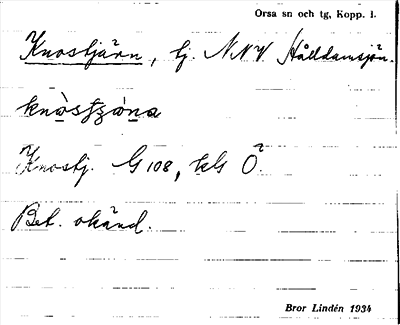 Orsa sn och tg, Kopp. l.
Knostjärn, tj. NNV Hålldamsjön.
Knostj. G 108, kls Ö.
Bet. okänd.
Bror Lindén 1934